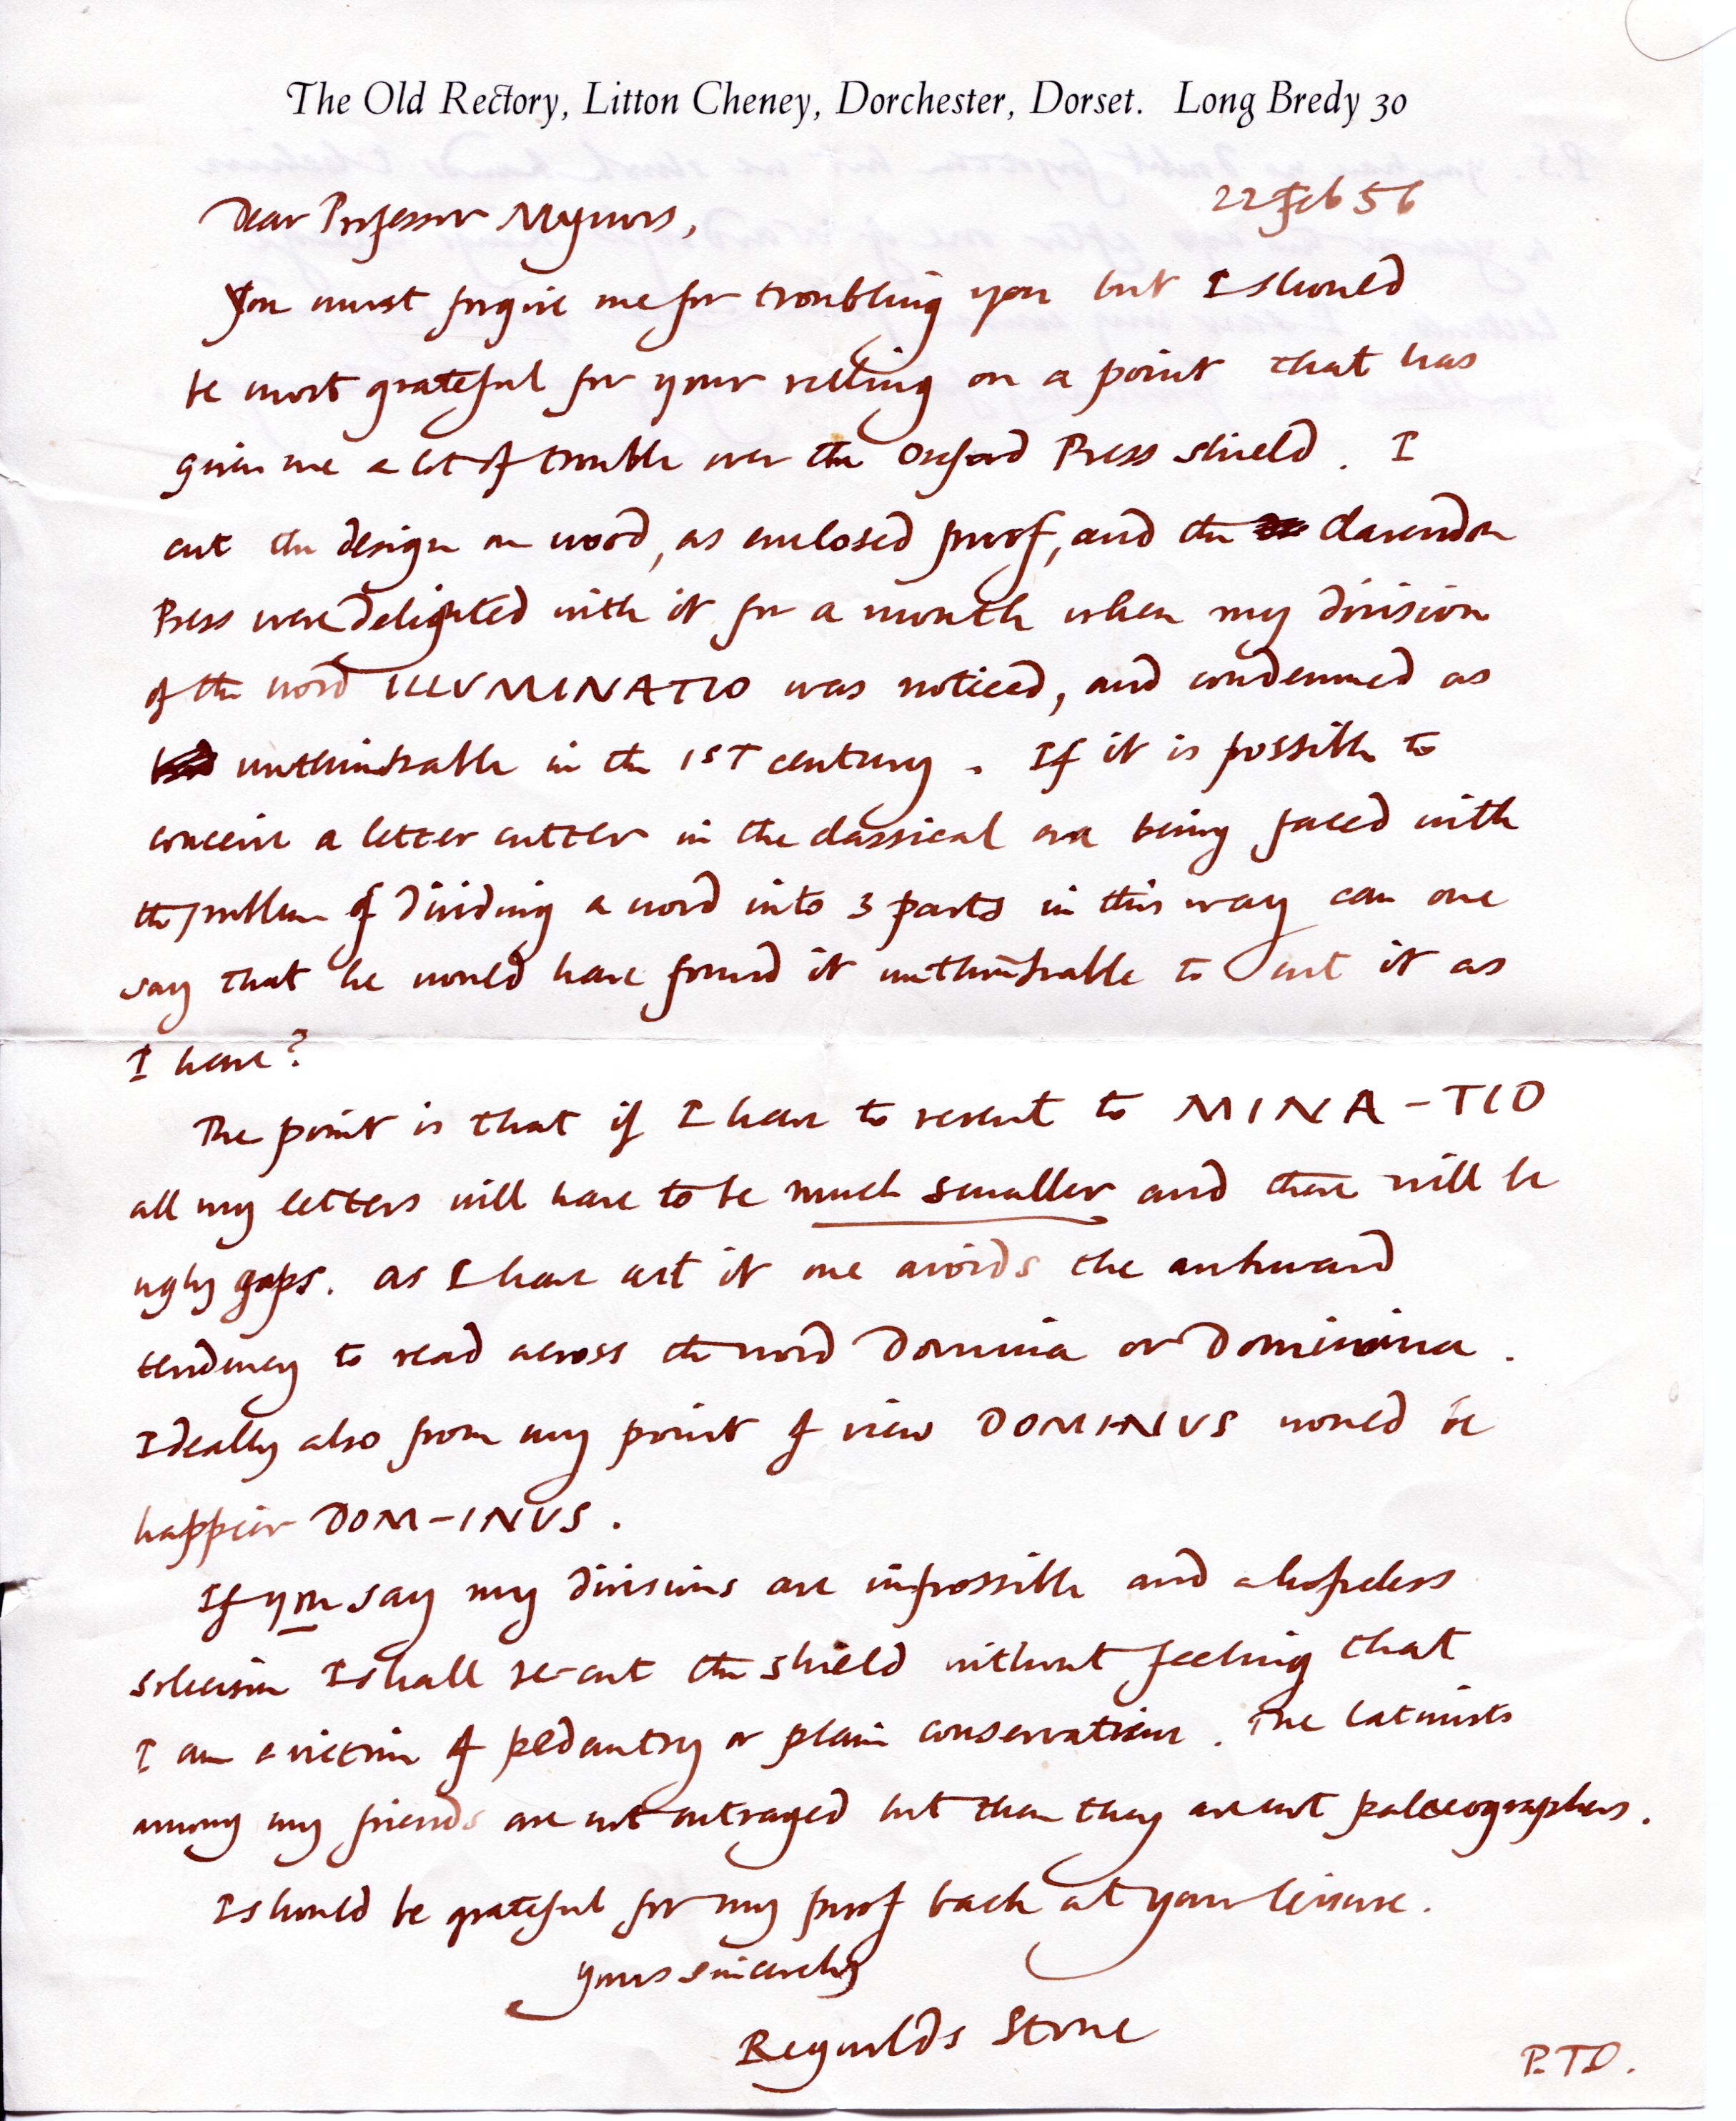 The Old Rectory, Litton Cheney, Dorchester, Dorset. Long Bredy 30
22 Feb 56
Dear Professor Mynors,
You must forgive me for troubling you but I should
be most grateful for your ruling on a point that has
given me a lot of trouble over the Oxford Press shield. I
cut the design on wood, as enclosed proof, and the Clarendon
Press were delighted with it for a month when my division
of the word ILLVMINATIO was noticed, and condemned as
unthinkable in the 1ST century. If it is possible to
conceive a letter cutter in the classical era being faced with
the problem of dividing a word into 3 parts in this way can one
say that he would have found it unthinkable to cut it as
I have?
The point is that if I have to revert to MINA-TIO
all my letters will have to be much smaller and there will be
ugly gaps. As I have cut it one avoids the awkward
tendency to read across the word Domina or Dominina.
Ideally also from my point of view DOMINVS would be
happier DOM-INVS.
If you say my divisions are impossible and a hopeless
solecism I shall re-cut the shield without feeling that
I am a victim of pedantry or plain conservatism. The Latinists
among my friends are not outraged but then they are not palaeographers.
I should be grateful for my proof back at your leisure.
Yours sincerely
Reynolds Stone
P.T.O.